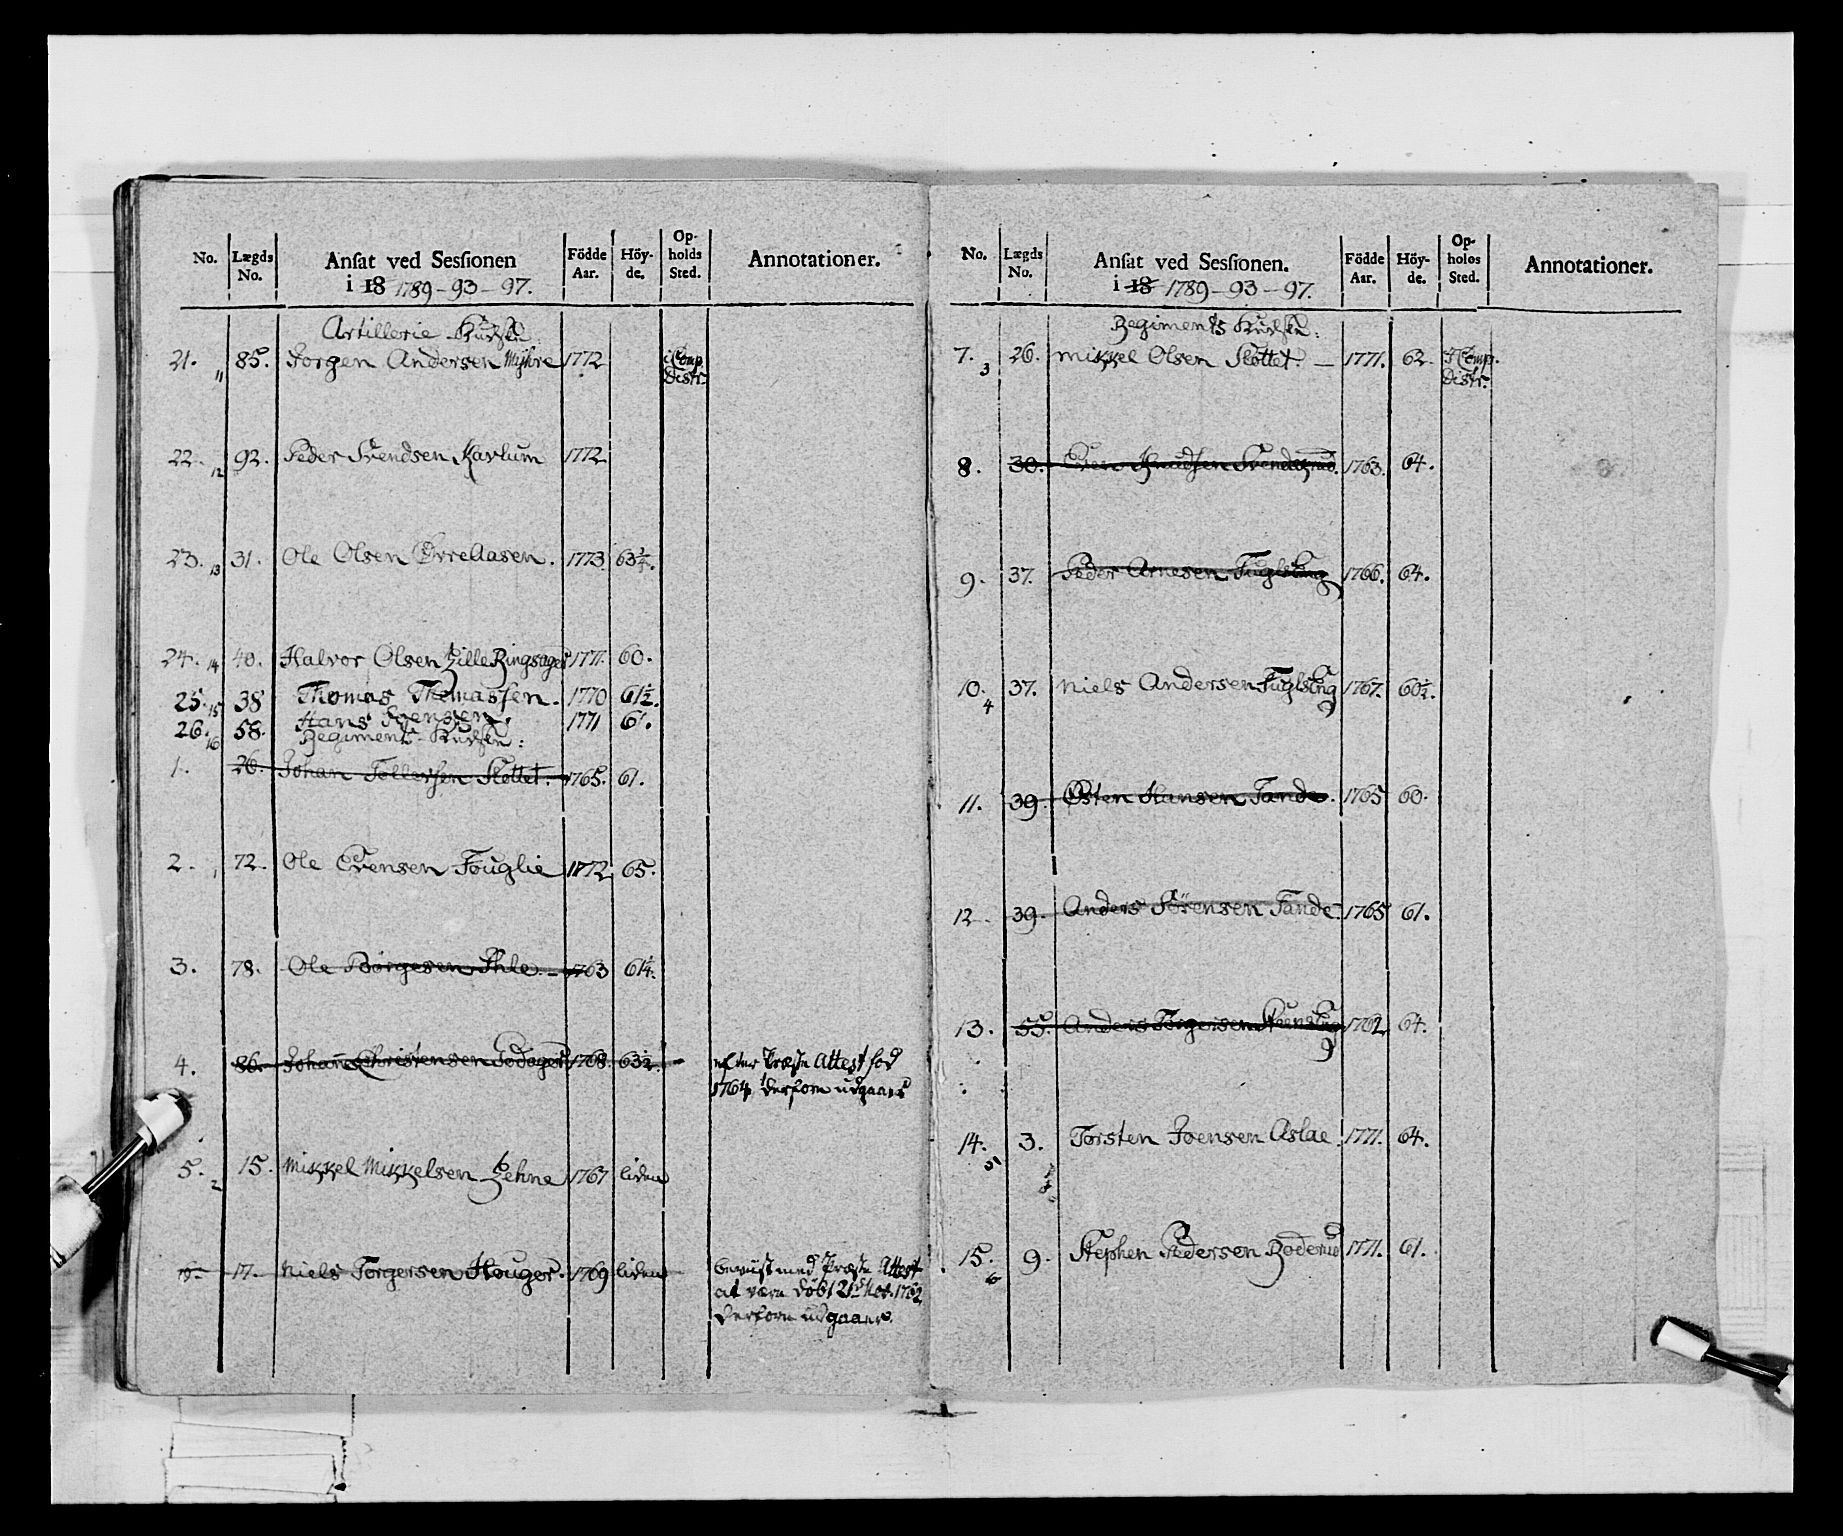 No. Lægds No. Ansat ved Sessionen i 18 1789-93-97. Födde Aar. Höyde. Opholds Sted. Annotationer.
Artillerie Kudske
21. 11 85. Jorgen Andersen Myhre 1772 i Comp. Distr.
22. 12 92. Peder Svendsen Karlum 1772
23. 13 31. Ole Olsen Ørreaasen. 1773 63¼.
24. 14 40. Halvor Olsen Lille Ringsager 1771. 60.
25. 15 38 Thomas Themassen. 1770 61½.
26. 16 58. Hans Joensen. 1771 61.
Regiments Kudske:
1. 26. Johan Tollersen Slottet. 1765. 61.
2. 1 72. Ole Evensen Fouglie 1772 65.
3. 78. Ole Børgesen Ihle. 1763 61¼.
4. 86. Johan Christensen 1768. 63½. efter Præste Attest fød
1764, derfore udgaaer
5. 2 15. Mikkel Mikkelsen Lehne 1767 liden
17. Niels Torgersen Houger. 1769 liden beviist med Præste Attest
at være døbt 21de 1762
derfore udgaaer.
No. Lægds No. Ansat ved Sessionen. i 18 1789-93-97. Födde Aar. Höyde. Opholds Sted. Annotationer.
Regiments Kudske:
7. 3 26. Mikkel Olsen Slottet. 1771. 62. i Comp. Distr.
8. 30. Even Knudsen Svendsrud. 1763. 64.
9. 37. Peder Arnesen Fuglseng 1766. 64.
10. 4 37. Niels Andersen Fuglseng 1767. 60½.
11. 39. Østen Hansen Tande. 1765 60.
12. 39. Anders Sørensen Tande 1765 61.
13. 55. Anders Torgersen 1762 64.
14. 5 3. Torsten Joensen Aslae. 1771. 64.
15. 6 9. Stephen Pedersen Boderud 1771. 61.